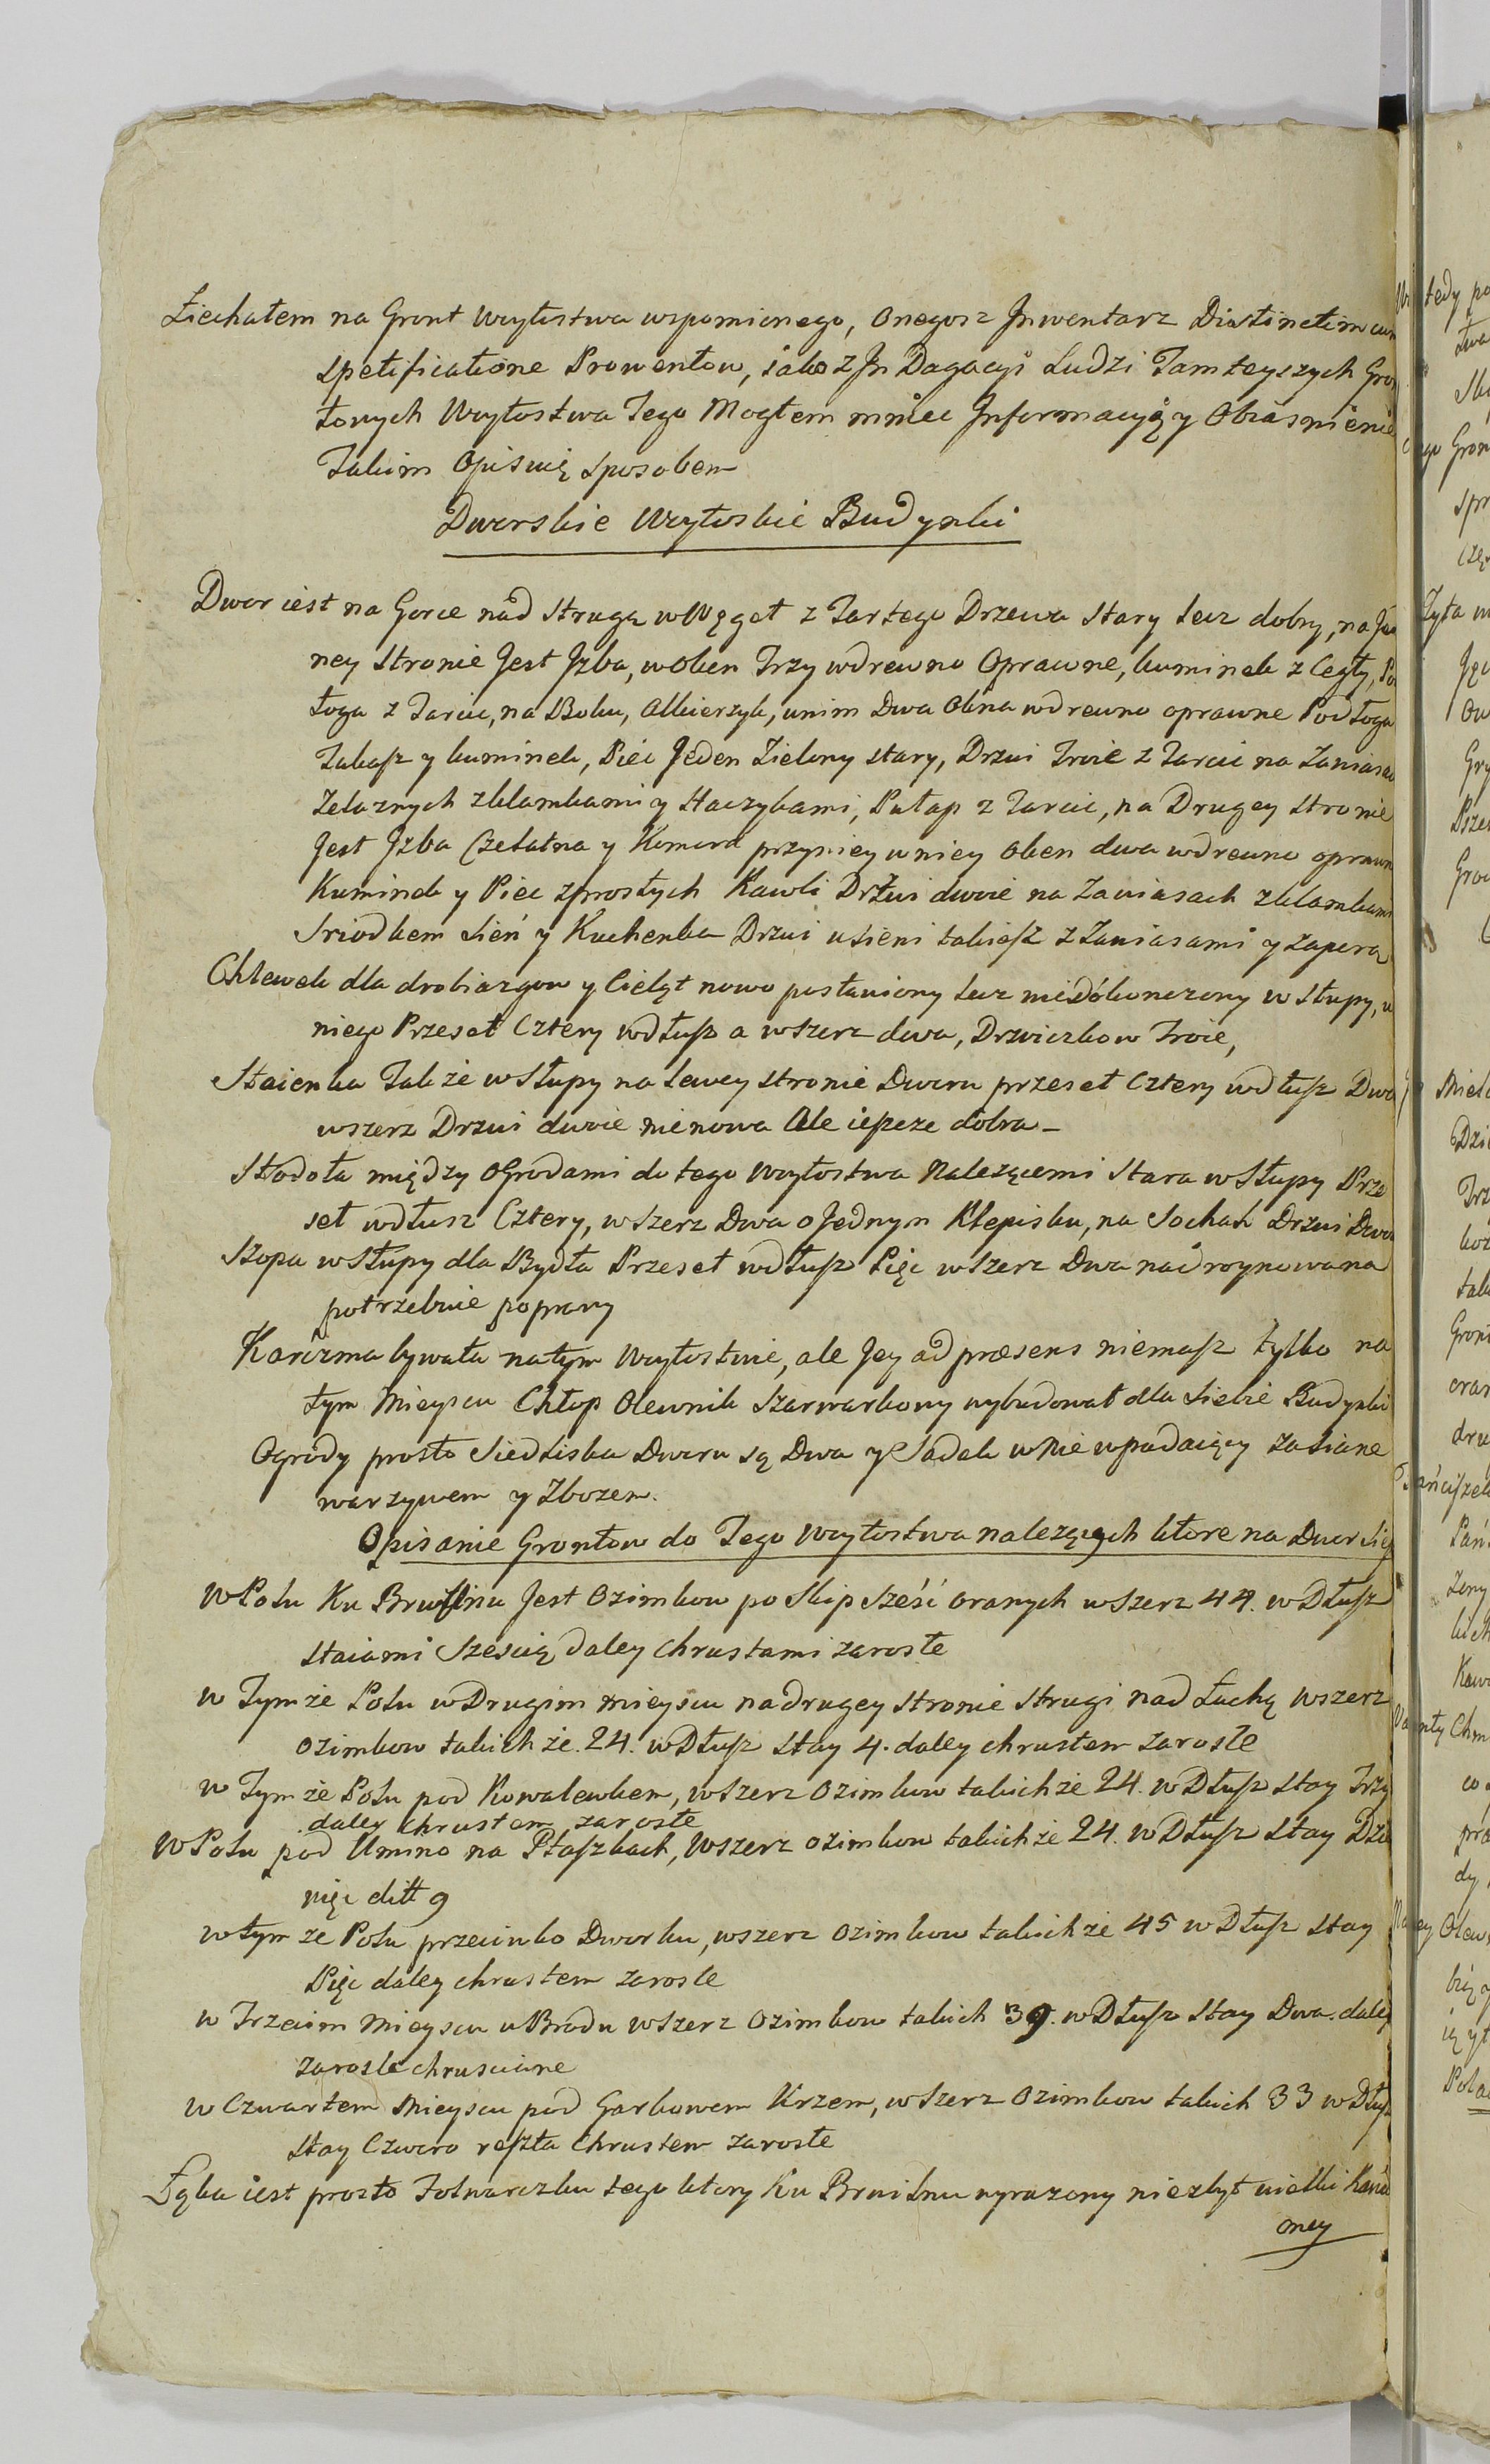 Ziechałem na Gront Wuytostwa wspomionego, onegosz Jnwentarz Distinctim cum
spetificatione Prowentow, jako z Jn Dagacyi Ludzi Tamteyszych Gron
towych Wuytostwa Tego Mogłem mniec Jnformacyią y Obiasnienie
Takim Opisuię sposobem
Dworskie Wuytoskie Budynki
Dwor iest na Gorce nad strugą w Węgeł z Tartego Drzewa stary lecz dobry, na Jed
ney stronie Jest Jzba, w oken Trzy w drewno oprawne, kuminek z Cegły, Po
łoga z Tarcic, na Boku, Alkierzyk, w nim Dwa okna w drewno oprawne Podłoga
Takasz y kuminek, Piec Jeden Zielony stary, Drzwi Troie z Tarcic na Zawiasach
Zelaznych z klamkami y staczykami, Pułap z Tarcic, na Drugey stronie
Jest Jzba Czeladna y Komora przyniey w niey oken dwa w drewno oprawn
Kuminek y Piec z prostych Kawli Drzwi dwoie na Zawiasach z klamkami
Sriodkiem Sień y Kuchenka Drzwi u Sieni takiesz z Zawiasami y zaporą
Chlewek dla drobiazgow y Cieląt nowo postawiony lecz niedokonczony w słupy, u
niego Przeseł Cztery w dłusz a w szerz dwa, Drzwiczkow Troie,
Staienka Takze w słupy na lewey stronie Dworu przeseł Cztery w dłusz Dwa
w szerz Drzwi dwoie nie nowa Ale ieszcze dobra -
Stodoła między Ogrodami do tego Wuytostwa Nalezącemi Stara w Słupy Prze
seł w dłusz Cztery, w szerz Dwa o Jednym Klepisku, na Sochah Drzwi Dwo
Szopa w Słupy dla Bydła Przeseł w dłusz Pięc w szerz Dwa nadroynowana
potrzebuie poprawy
Karczma bywała na tym Wuytostwie, ale Jey ad præsens niemasz tylko na
tym Mieyscu Chłop Olewnik Szarwarkowy wybudował dla Siebie Budynki
Ogrody prosto Siedliska Dworu są Dwa y Sadek w nie wpadaiący zasiane
warzywem y Zbozem.
Opisanie Grontow do Tego Wuytostwa nalezących ktore na Dwor Sieią
W Polu Ku Brwilnu Jest Ozimkow po Skip Szesć oranych w szerz 44. w Dłusz
staiami Szescią daley chrustami zarosłe
w Tymze Polu w Drugim mieyscu na drugey stronie Strugi nad Łuchą w szerz
ozimkow takichze. 24. w Dłusz stay 4. daley chrustem zarosłe
w Tymze Polu pod Kowalewkem, w szerz Ozimkow takichze 24. w Dłusz stay Trzy
daley chrustem zarosłe
W Polu pod Umino na Ptaszkach, w szerz ozimkow takichze 24. w Dłusz stay Dzie
więc ditt 9
w tymze Polu przeciwko Dworku, w szerz ozimkow takichze 45 w Dłusz stay
Pięc daley chrustem zarosłe
w Trzecim Mieyscu u Brodu w szerz Ozimkow takich 39. w Dłusz stay Dwa. daley
zarosle chrusciane
w Czwartem Mieyscu pod Garbowem Krzem, w szerz Ozimkow takich 33 w Dłusz
stay Czworo reszta Chrustem zarosłe
Łąka iest prosto Folwarczku tego ktory Ku Brwilnu wyrazony niezbyt wielki